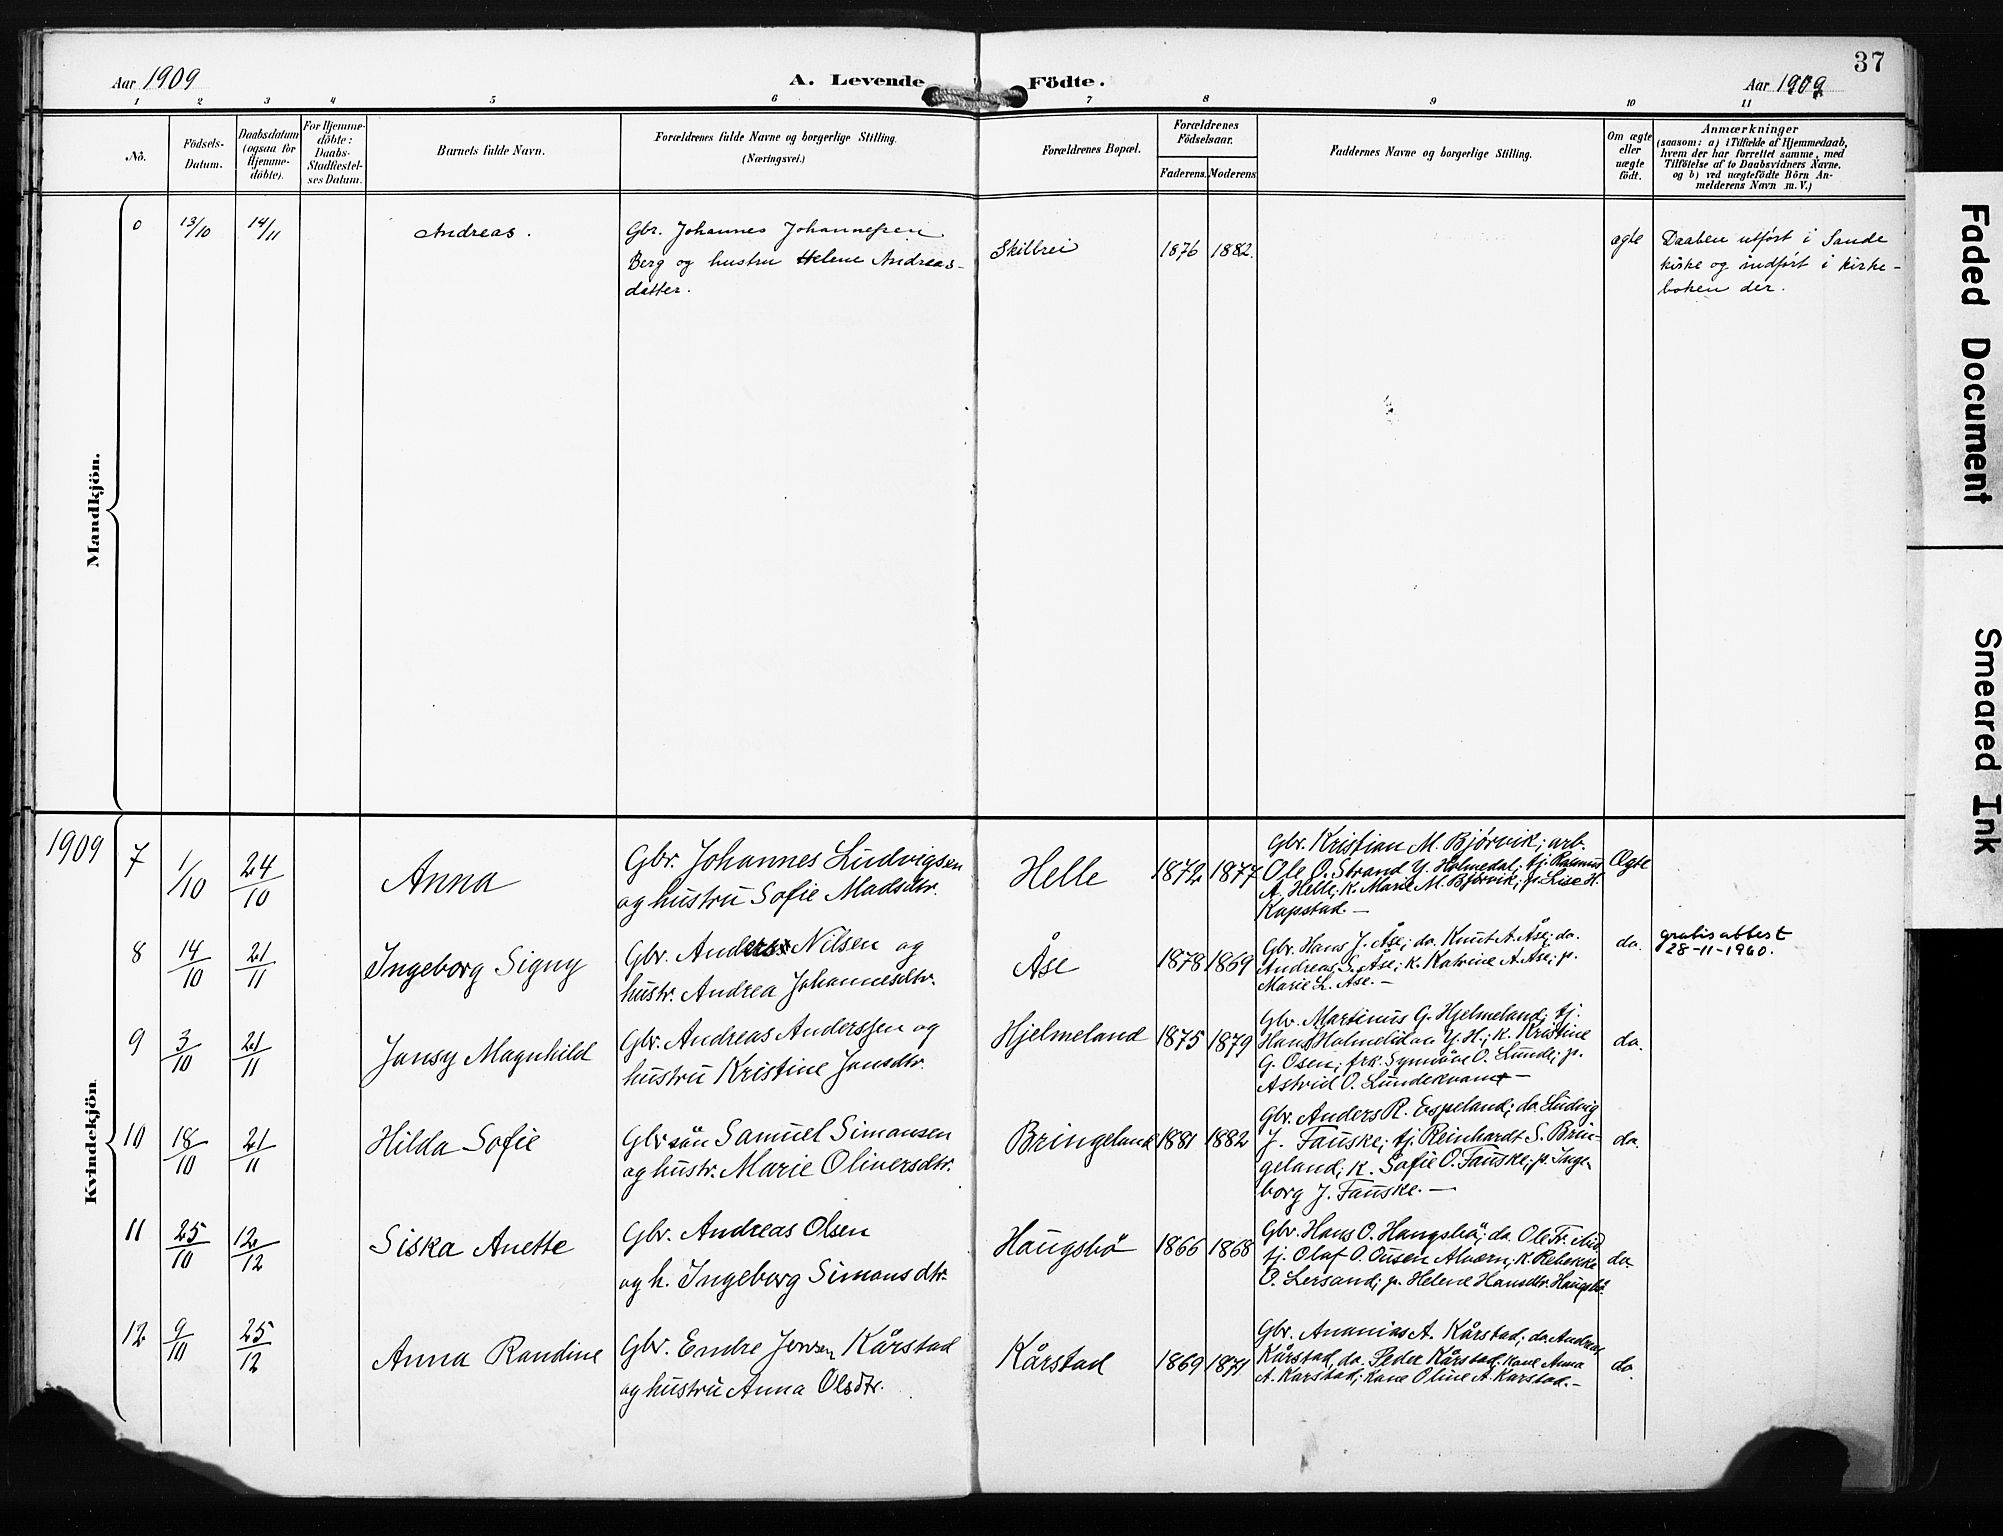 37
Aar 1909
A. Levende Födte.
Aar 1909
1 2 3 4 5 6 7 8 9 10 11
No.
Födsels-
Datum.
Daabsdatum
(ogsaa for
Hjemme-
döbte).
For Hjemme-
döbte:
Daabs-
Stadfæstel-
ses Datum.
Barnets fulde Navn.
Forældrenes fulde Navne og borgerlige Stilling.
(Næringsvei.)
Forældrenes Bopæl.
Forældrenes
Födselsaar.
Faderens. Moderens
Faddernes Navne og borgerlige Stilling.
Om ægte
eller
uægte
födt.
Anmærkninger
(saasom: a) i Tilfælde af Hjemmedaab,
hvem der har forrettet samme, med
Tilföielse af to Daabsvidners Navne.
og b) ved uægtefödte Börn An-
melderens Navn m. V.)
Mandkjön.
0
13/10
14/11
Andreas.
Gbr. Johannes Johannessen
Berg og hustru Helene Andreas-
datter.
Skilbrei
1876
1882.
ægte
Daaben utført i Sande
kirke og indført i kirke-
boken der.
Kvindekjön.
1909
7
1/10
24/10
Anna
Gbr. Johannes Ludvigsen
og hustru Sofie Madsdtr.
Helle
1872
1877
Gbr. Kristian M. Bjørvik; arb.
Ole O. Strand Y. Holmedal; tj. Rasmus
A. Helle; k. Marie M. Bjørvik; p. Lise H.
Kapstad. —
Ægte
8
14/10
21/11
Ingeborg Signy
Gbr. Anders Nilsen og
hustr. Andrea Johannesdtr.
Åse
1878
1869
Gbr. Hans J. Åse; do. Knut A. Åse; do.
Andreas S. Åse; k. Katrine A. Åse; p.
Marie L. Åse. —
do.
gratis attest
28-11-1960.
9
3/10
21/11
Jansy Magnhild
Gbr. Andreas Anderssen og
hustru Kristine Jonsdtr.
Hjelmeland
1875
1879
Gbr. Martinus G. Hjelmeland; tj.
Hans Holmelid on Y. H.; k. Kristine
G. Osen; frk. Synnøve O. Lunde; p.
Astrid O. Lundekvam —
do.
10
18/10
21/11
Hilda Sofie
Gbr søn Samuel Simonsen
og hustr. Marie Oliversdtr.
Bringeland
1881
1882
Gbr. Anders R. Espeland; do. Ludvig
J. Fauske; tj. Reinhardt S. Brin-
geland; k. Sofie O. Fauske; p. Inge-
borg J. Fauske. —
do.
11
25/10
12/12
Siska Anette
Gbr. Andreas Olsen
og h. Ingeborg Simonsdtr.
Haugsbø
1866
1868
Gbr. Hans O. Haugsbø; do. Ole Tr.
tj. Olaf O. Ousen Alværn; k. Rebekka
O. Lersand; p. Helene Hansdtr. Haugsbø
do.
12
9/10
25/12
Anna Randine
Gbr. Endre Jensen Kårstad
og hustru Anna Olsdtr.
Kårstad
1869
1871
Gbr. Ananias A. Kårstad; do. Andreas
Kårstad, do. Peder Kårstad; kone Anna
A. Karstad; kone Oline A. Karstad. —
do.
Faded Document
Smeared Ink